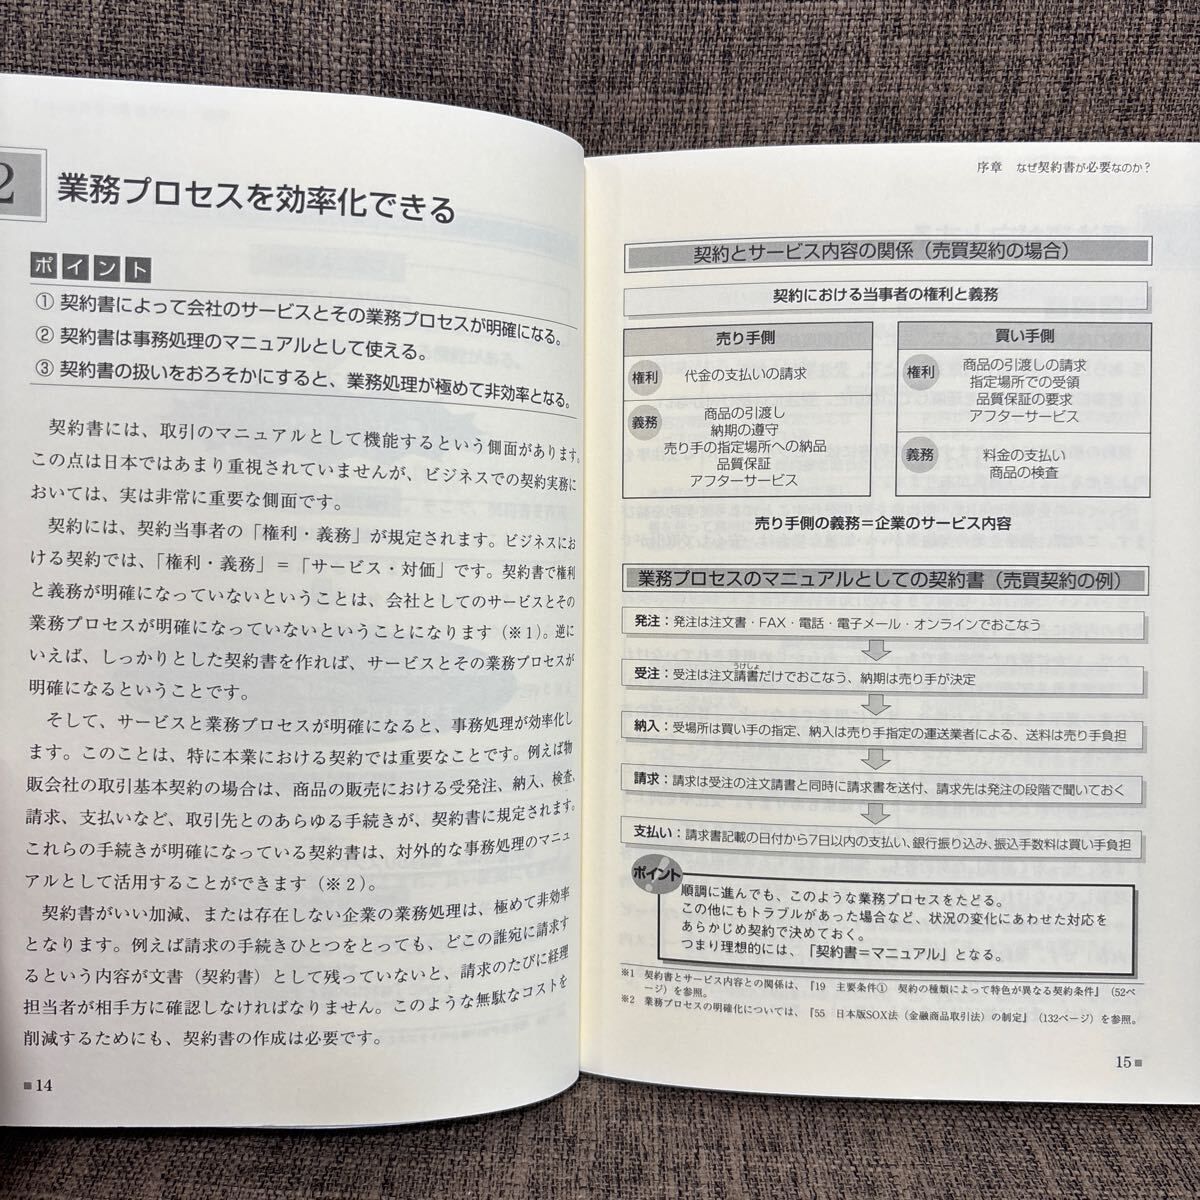 2
業務プロセスを効率化できる
ポイント
① 契約書によって会社のサービスとその業務プロセスが明確になる。
② 契約書は事務処理のマニュアルとして使える。
③ 契約書の扱いをおろそかにすると、業務処理が極めて非効率となる。
契約書には、取引のマニュアルとして機能するという側面があります。
この点は日本ではあまり重視されていませんが、ビジネスでの契約実務に
おいては、実は非常に重要な側面です。
契約には、契約当事者の「権利・義務」が規定されます。ビジネスにお
ける契約では、「権利・義務」＝「サービス・対価」です。契約書で権利
と義務が明確になっていないということは、会社としてのサービスとその
業務プロセスが明確になっていないということになります（※1）。逆に
いえば、しっかりとした契約書を作れば、サービスとその業務プロセスが
明確になるということです。
そして、サービスと業務プロセスが明確になると、事務処理が効率化し
ます。このことは、特に本業における契約では重要なことです。例えば物
販会社の取引基本契約の場合は、商品の販売における受発注、納入、検査、
請求、支払いなど、取引先とのあらゆる手続きが、契約書に規定されます。
これらの手続きが明確になっている契約書は、対外的な事務処理のマニュ
アルとして活用することができます（※2）。
契約書がいい加減、または存在しない企業の業務処理は、極めて非効率
となります。例えば請求の手続きひとつをとっても、どこの誰宛に請求す
るという内容が文書（契約書）として残っていないと、請求のたびに経理
担当者が相手方に確認しなければなりません。このような無駄なコストを
削減するためにも、契約書の作成は必要です。
14
序章　なぜ契約書が必要なのか？
契約とサービス内容の関係（売買契約の場合）
契約における当事者の権利と義務
売り手側
権利
代金の支払いの請求
義務
商品の引渡し
納期の遵守
売り手の指定場所への納品
品質保証
アフターサービス
買い手側
権利
商品の引渡しの請求
指定場所での受領
品質保証の要求
アフターサービス
義務
料金の支払い
商品の検査
売り手側の義務＝企業のサービス内容
業務プロセスのマニュアルとしての契約書（売買契約の例）
発注：発注は注文書・FAX・電話・電子メール・オンラインでおこなう
うけしょ
受注：受注は注文請書だけでおこなう、納期は売り手が決定
納入：受場所は買い手の指定、納入は売り手指定の運送業者による、送料は売り手負担
請求：請求は受注の注文請書と同時に請求書を送付、請求先は発注の段階で聞いておく
支払い：請求書記載の日付から7日以内の支払い、銀行振り込み、振込手数料は買い手負担
ポイント
順調に進んでも、このような業務プロセスをたどる。
この他にもトラブルがあった場合など、状況の変化にあわせた対応を
あらかじめ契約で決めておく。
つまり理想的には、「契約書＝マニュアル」となる。
※1　契約書とサービス内容との関係は、『19　主要条件①　契約の種類によって特色が異なる契約条件』（52ペ
ージ）を参照。
※2　業務プロセスの明確化については、『55　日本版SOX法（金融商品取引法）の制定』（132ページ）を参照。
15